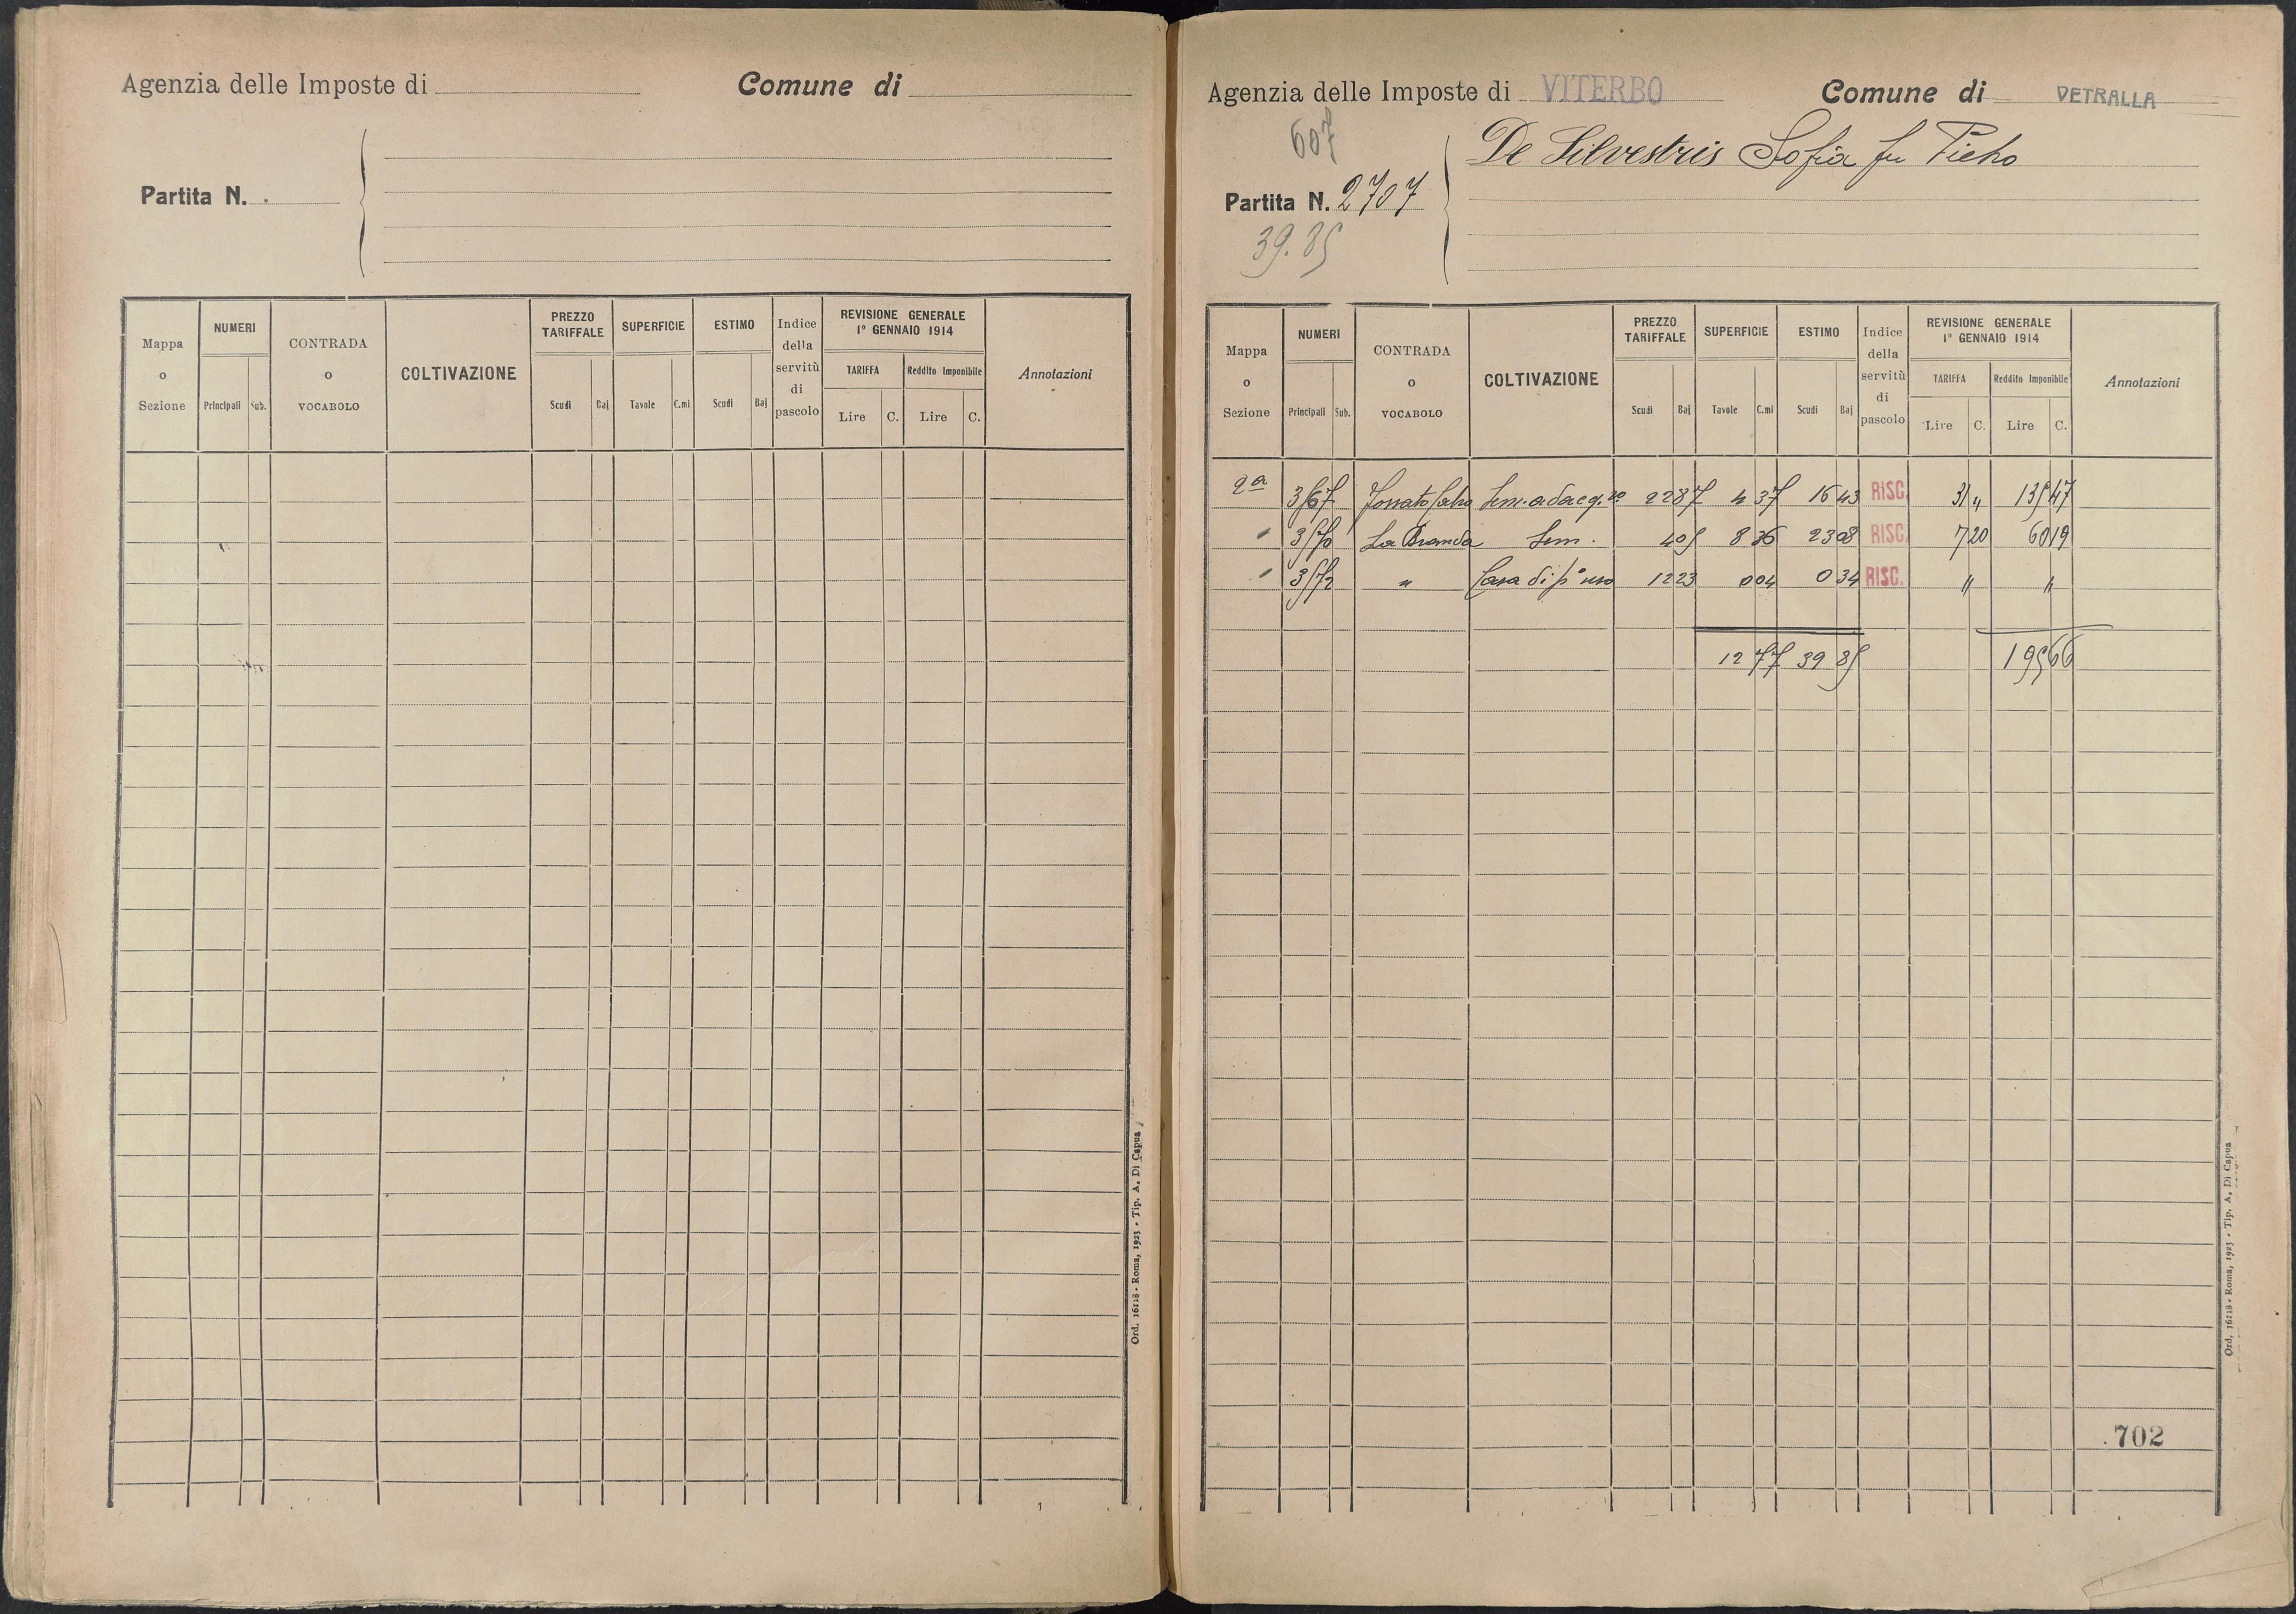 Agenzia delle Imposte di
Comune di
Partita N.
Mappa o Sezione
NUMERI
Principali Sub.
CONTRADA o VOCABOLO
COLTIVAZIONE
PREZZO TARIFFALE
Scudi Baj
SUPERFICIE
Tavole C.mi
ESTIMO
Scudi Baj
Indice della servitù di pascolo
REVISIONE GENERALE
1° GENNAIO 1914
TARIFFA
Lire C.
Reddito Imponibile
Lire C.
Annotazioni
Ord. 16118 - Roma, 1923 - Tip. A. Di Capua
Agenzia delle Imposte di VITERBO
Comune di VETRALLA
607
De Silvestris Sofia fu
Partita N. 2707
39.85
Mappa o Sezione
NUMERI
Principali Sub.
CONTRADA o VOCABOLO
COLTIVAZIONE
PREZZO TARIFFALE
Scudi Baj
SUPERFICIE
Tavole C.mi
ESTIMO
Scudi Baj
Indice della servitù di pascolo
REVISIONE GENERALE
1° GENNAIO 1914
TARIFFA
Lire C.
Reddito Imponibile
Lire C.
Annotazioni
2a 3567 22 87 4 37 16 43 RISC. 31 " 135 47
" 3570 La Sem. 4 05 8 36 23 08 RISC. 7 20 60 19
" 3572 " Casa di p° uso 12 23 0 04 0 34 RISC. " "
12 77 39 85 195 66
702
Ord. 16118 - Roma, 1923 - Tip. A. Di Capua